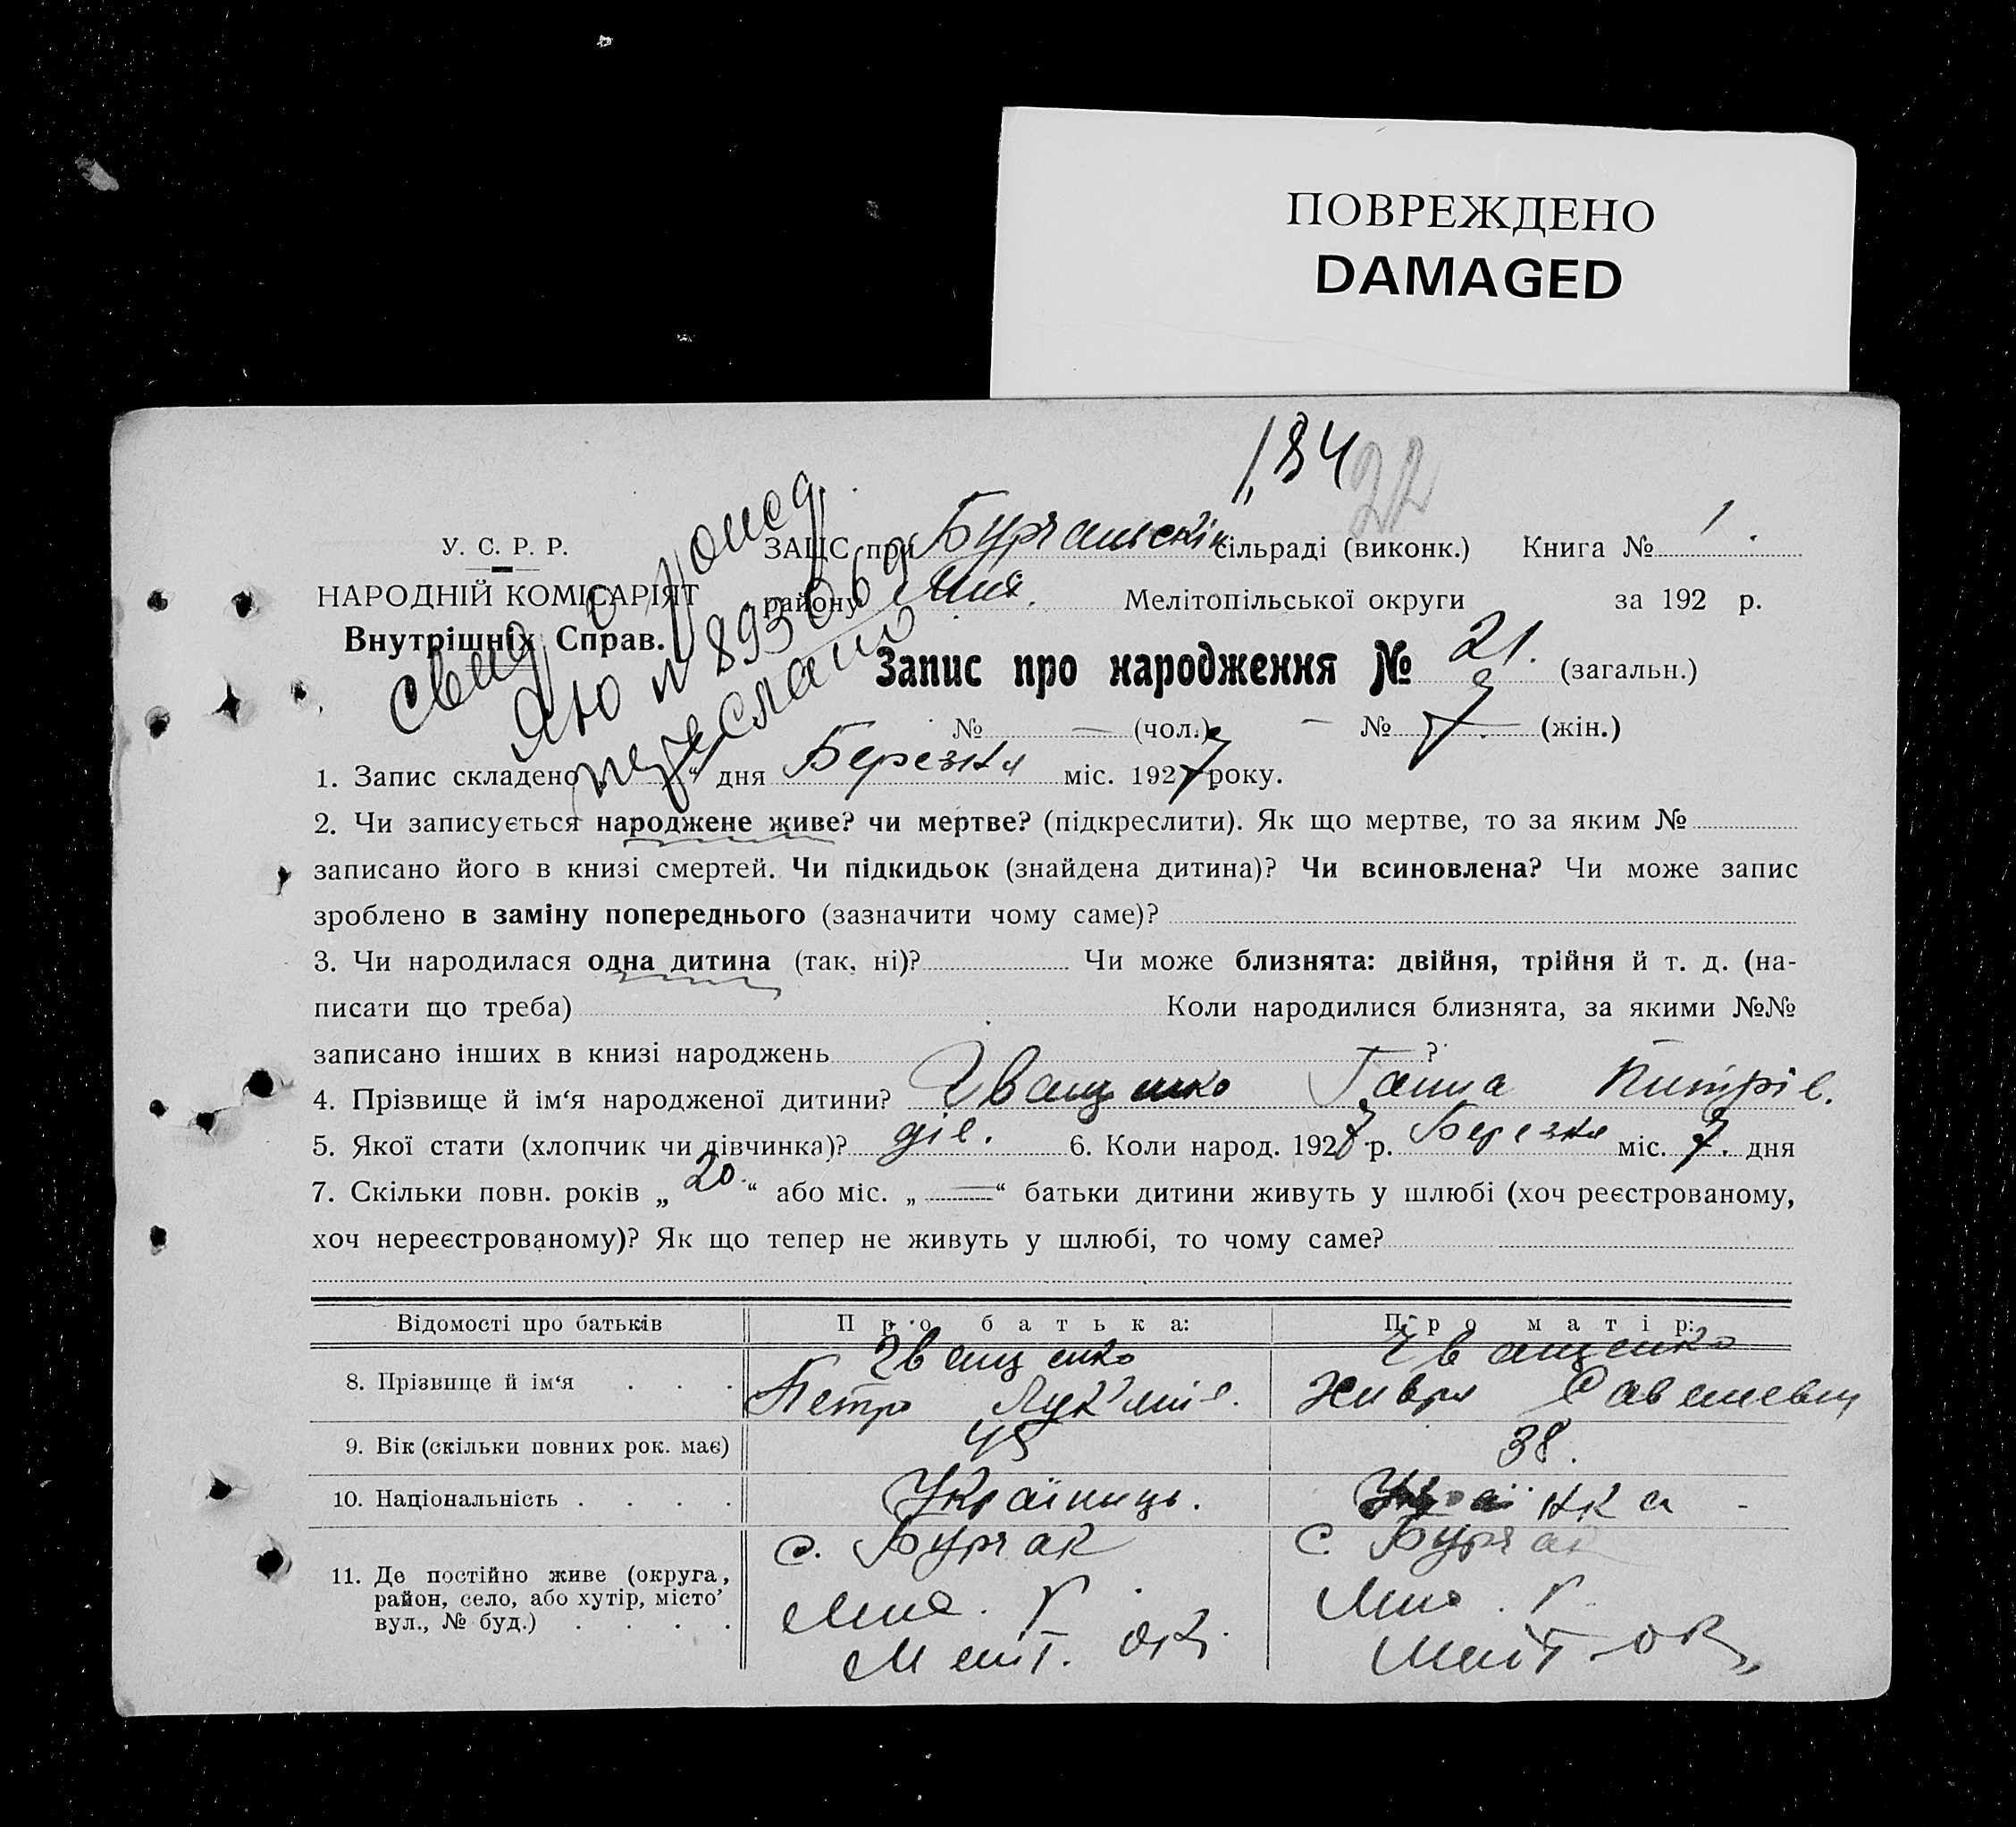 ПОВРЕЖДЕНО
DAMAGED
184
22
У. С. Р. Р.
НАРОДНІЙ КОМІСАРІЯТ
Внутрішніх Справ.
ЗАЦС при сільраді (виконк.) Книга № 1.
району Мелітопільської округи за 192 р.
свид о рожд
ЯЮ № 893069
переслано
Запис про народження № 21. (загальн.)
№ — (чол.) — № (жін.)
1. Запис складено „ “ дня Березня міс. 1927 року.
2. Чи записується народжене живе? чи мертве? (підкреслити). Як що мертве, то за яким №
записано його в книзі смертей. Чи підкидьок (знайдена дитина)? Чи всиновлена? Чи може запис
зроблено в заміну попереднього (зазначити чому саме)?
3. Чи народилася одна дитина (так, ні)? Чи може близнята: двійня, трійня й т. д. (на-
писати що треба) Коли народилися близнята, за якими №№
записано інших в книзі народжень ?
4. Прізвище й ім‘я народженої дитини? Іващенко Ганна
5. Якої стати (хлопчик чи дівчинка)? дів. 6. Коли народ. 1927 р. Березня міс. 7. дня
7. Скільки повн. років „ 20 “ або міс. „ — “ батьки дитини живуть у шлюбі (хоч реєстрованому,
хоч нереєстрованому)? Як що тепер не живуть у шлюбі, то чому саме?
Відомості про батьків Про батька: Про матір:
Іващенко Іващенко
8. Прізвище й ім‘я . . . Петро
9. Вік (скільки повних рок. має) 45 38.
10. Національність . . . . Українець. Українка
11. Де постійно живе (округа, район, село, або хутір, місто’ вул., № буд.) . . . .
с. Бурчак с. Бурчак
р. р.
Меліт. окр. Меліт. ок